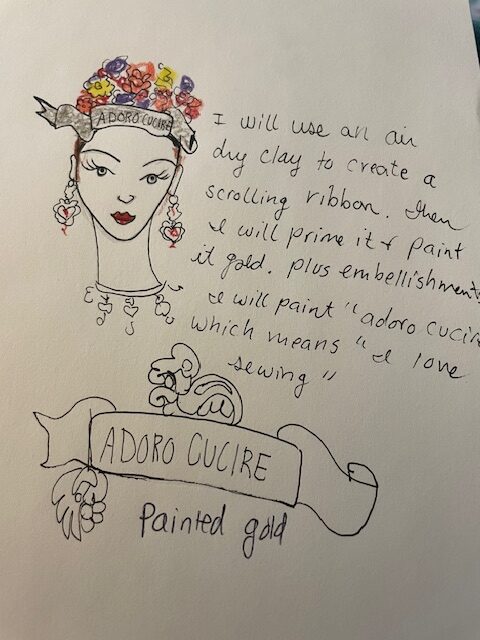 ADORO CUCIRE
I will use an air
dry clay to create a
scrolling ribbon. Then
I will prime it & paint
it gold. plus embellishments
I will paint "adoro cucire
which means "I love
sewing"
ADORO CUCIRE
Painted gold